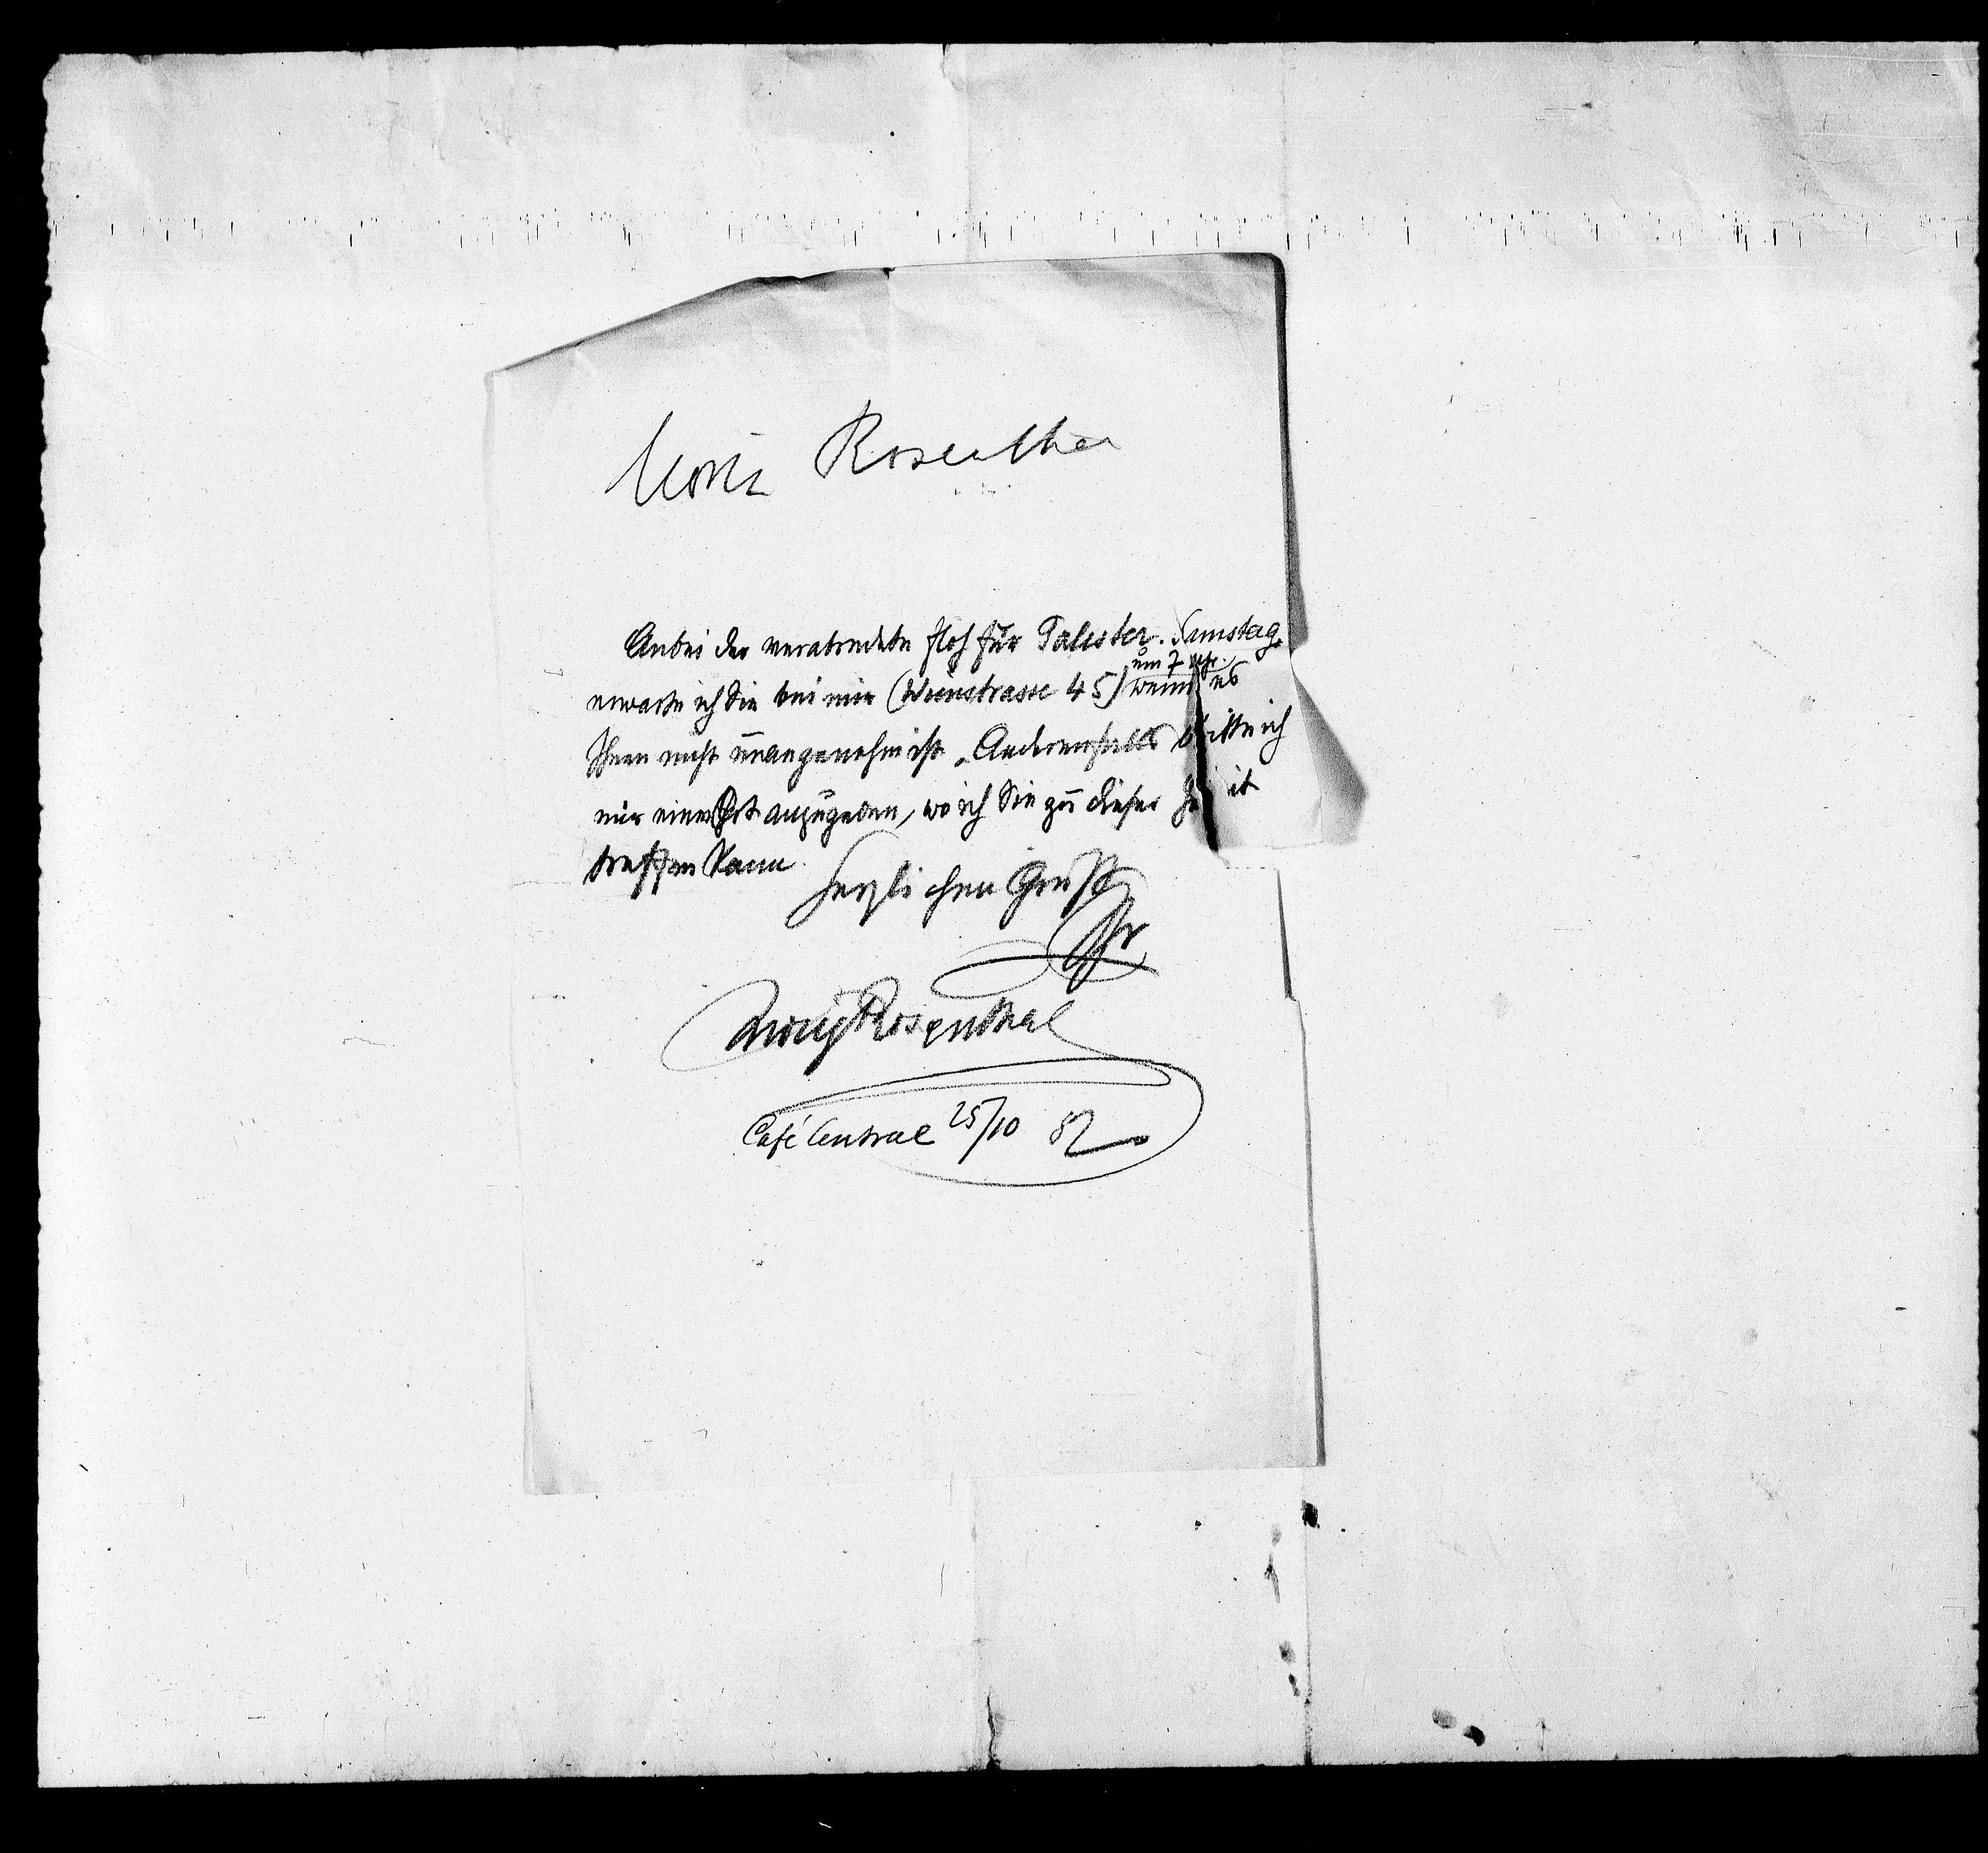 Moriz Rosenthal
Anbei der verabredete Floh für Talester. Samstag
um 7 Uhr
erwarte ich Sie bei mir (Weinstrasse 45) wenn es
Ihnen nicht unangenehm ist. Anderenfalls bitte ich
mir einen Ort anzugeben, wo ich Sie zu dieser Zeit
treffen kann.
Herzlichen Gruß
Ihr
Moriz Rosenthal
Café Central 25/10 82